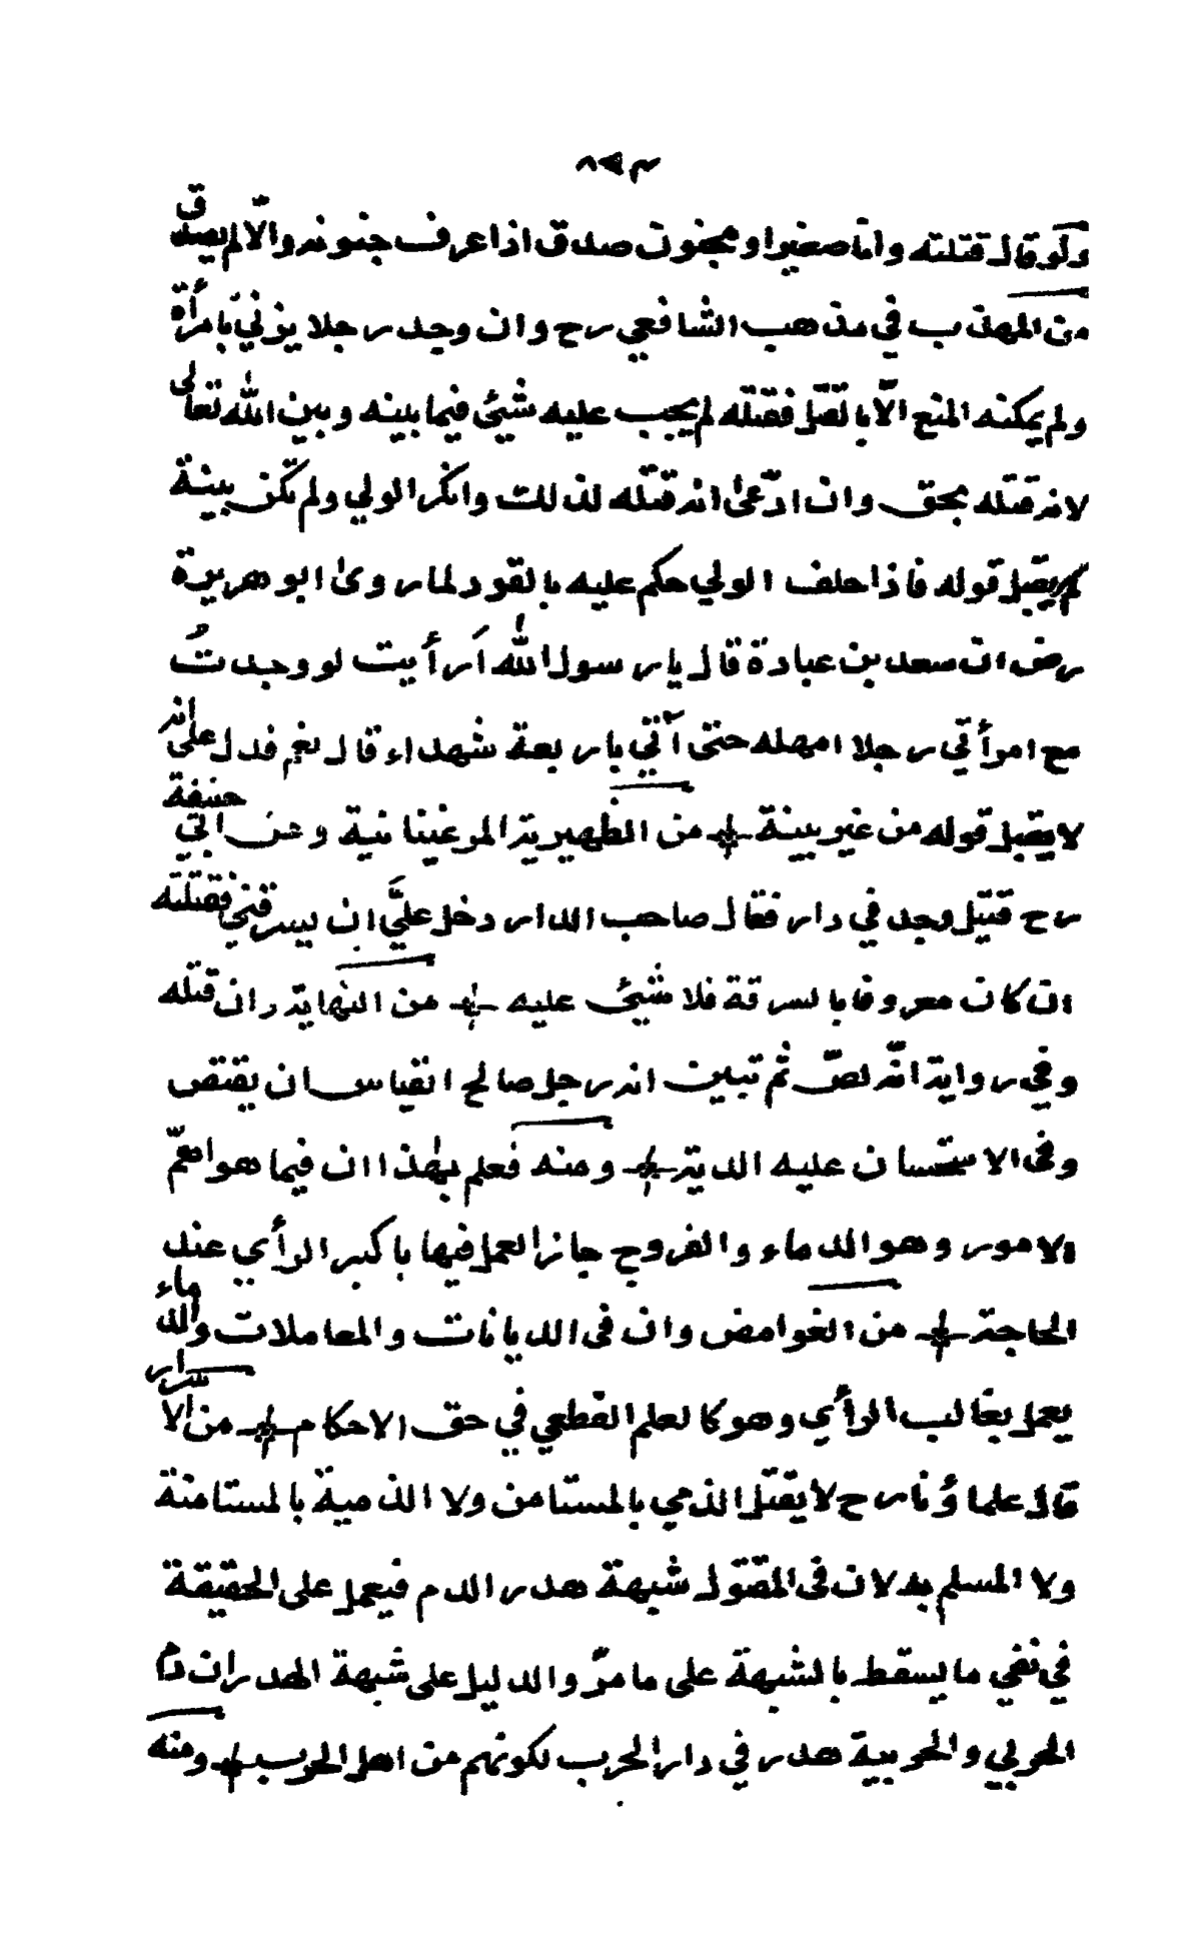 ٨٧٣
ولو قال قتلته وانا صغير او مجنون صدق اذا عرف جنونه والّا لم يصدق
من المهذب في مذهب الشافعي رح وان وجد رجلا يزني بامرأة
ولم يمكنه المنع الّا بالقتل فقتله لم يجب عليه شيئ فيما بينه وبين الله تعالى
لانه قتله بحق وان ادّعى انه قتله لذلك وانكر الولي ولم تكن بينة
لم يقبل قوله فاذا حلف الولي حكم عليه بالقود لما روى ابو هريرة
رض ان سعد بن عبادة قال يا رسول الله اَرأيت لو وجدتُ
مع امرأتي رجلا امهله حتى آتي باربعة شهداء قال نعم فدل على انه
لا يقبل قوله من غير بينة من الظهيرية المرغينانية وعن ابي حنيفة
رح قتيل وجد في دار فقال صاحب الدار دخل عليَّ ان يسرقني فقتلته
ان كان معروفا بالسرقة فلا شيئ عليه من النهاية وان قتله
وفي رواية انّه لصّ ثم تبين انه رجل صالح القياس ان يقتص
وفى الاستحسان عليه الدية ومنه فعلم بهذا ان فيما هو اهمّ
الامور وهو الدماء والفروج جاز العمل فيها باكبر الرأي عند
الحاجة من الغوامض وان فى الديانات والمعاملات والدماء
يعمل بغالب الرأي وهو كالعلم القطعي في حق الاحكام من الاسرار
قال علماؤنا رح لا يقتل الذمي بالمستامن ولا الذمية بالمستامنة
ولا المسلم به لان فى المقتول شبهة هدر الدم فيعمل على الحقيقة
في نفي ما يسقط بالشبهة على ما مرّ والدليل على شبهة الهدر ان دم
الحربي والحربية هدر في دار الحرب لكونهم من اهل الحرب ومنه